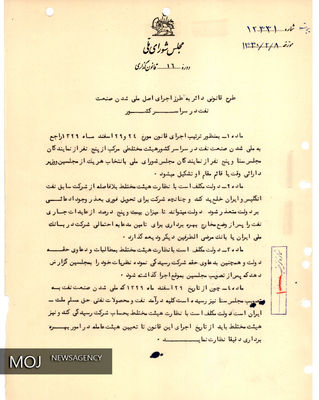 شماره ۱۲۳۳۱
مورخه ۱۳۳۰/۲/۸
مجلس شورای ملی
دوره ۱۶ قانون گذاری
طرح قانونی دائر به طرز اجرای اصل ملی شدن صنعت
نفت در سراسر کشور
ماده ۱ـ بمنظور ترتیب اجرای قانون مورخ ۲۴ و ۲۹ اسفند ماه ۱۳۲۹ راجع
به ملی شدن صنعت نفت در سراسر کشور هیئت مختلطی مرکب از پنج نفر از نمایندگان
مجلس سنا و پنج نفر از نمایندگان مجلس شورای ملی بانتخاب هر یک از مجلسین و وزیر
دارائی وقت یا قائم مقام او تشکیل میشود
ماده ۲ـ دولت مکلف است با نظارت هیئت مختلط بلافاصله از شرکت سابق نفت
انگلیس و ایران خلع ید کند و چنانچه شرکت برای تحویل فوری بعذر وجود ادعائی
بر دولت متعذر شود دولت میتواند تا میزان بیست و پنج درصد از عایدات جاری
نفت را پس از وضع مخارج بهره برداری برای تامین مدعابه احتمالی شرکت در بانک
ملی ایران یا بانک مرضی الطرفین دیگر ودیعه گذارد
ماده ۳ـ دولت مکلف است با نظارت هیئت مختلط بمطالبات و دعاوی حقه
دولت و همچنین بدعاوی حقه شرکت رسیدگی نموده نظریات خود را بمجلسین گزارش
دهد که پس از تصویب مجلسین بموقع اجرا گذاشته شود
ماده ۴ـ چون از تاریخ ۲۹ اسفند ماه ۱۳۲۹ که ملی شدن صنعت نفت به
تصویب مجلس سنا نیز رسیده است کلیه درآمد نفت و محصولات نفتی حق مسلم ملت
ایران است دولت مکلف است با نظارت هیئت مختلط بحساب شرکت رسیدگی کند و نیز
هیئت مختلط باید از تاریخ اجرای این قانون تا تعیین هیئت عامله در امور بهره
برداری دقیقا نظارت نماید
MOJ NEWSAGENCY